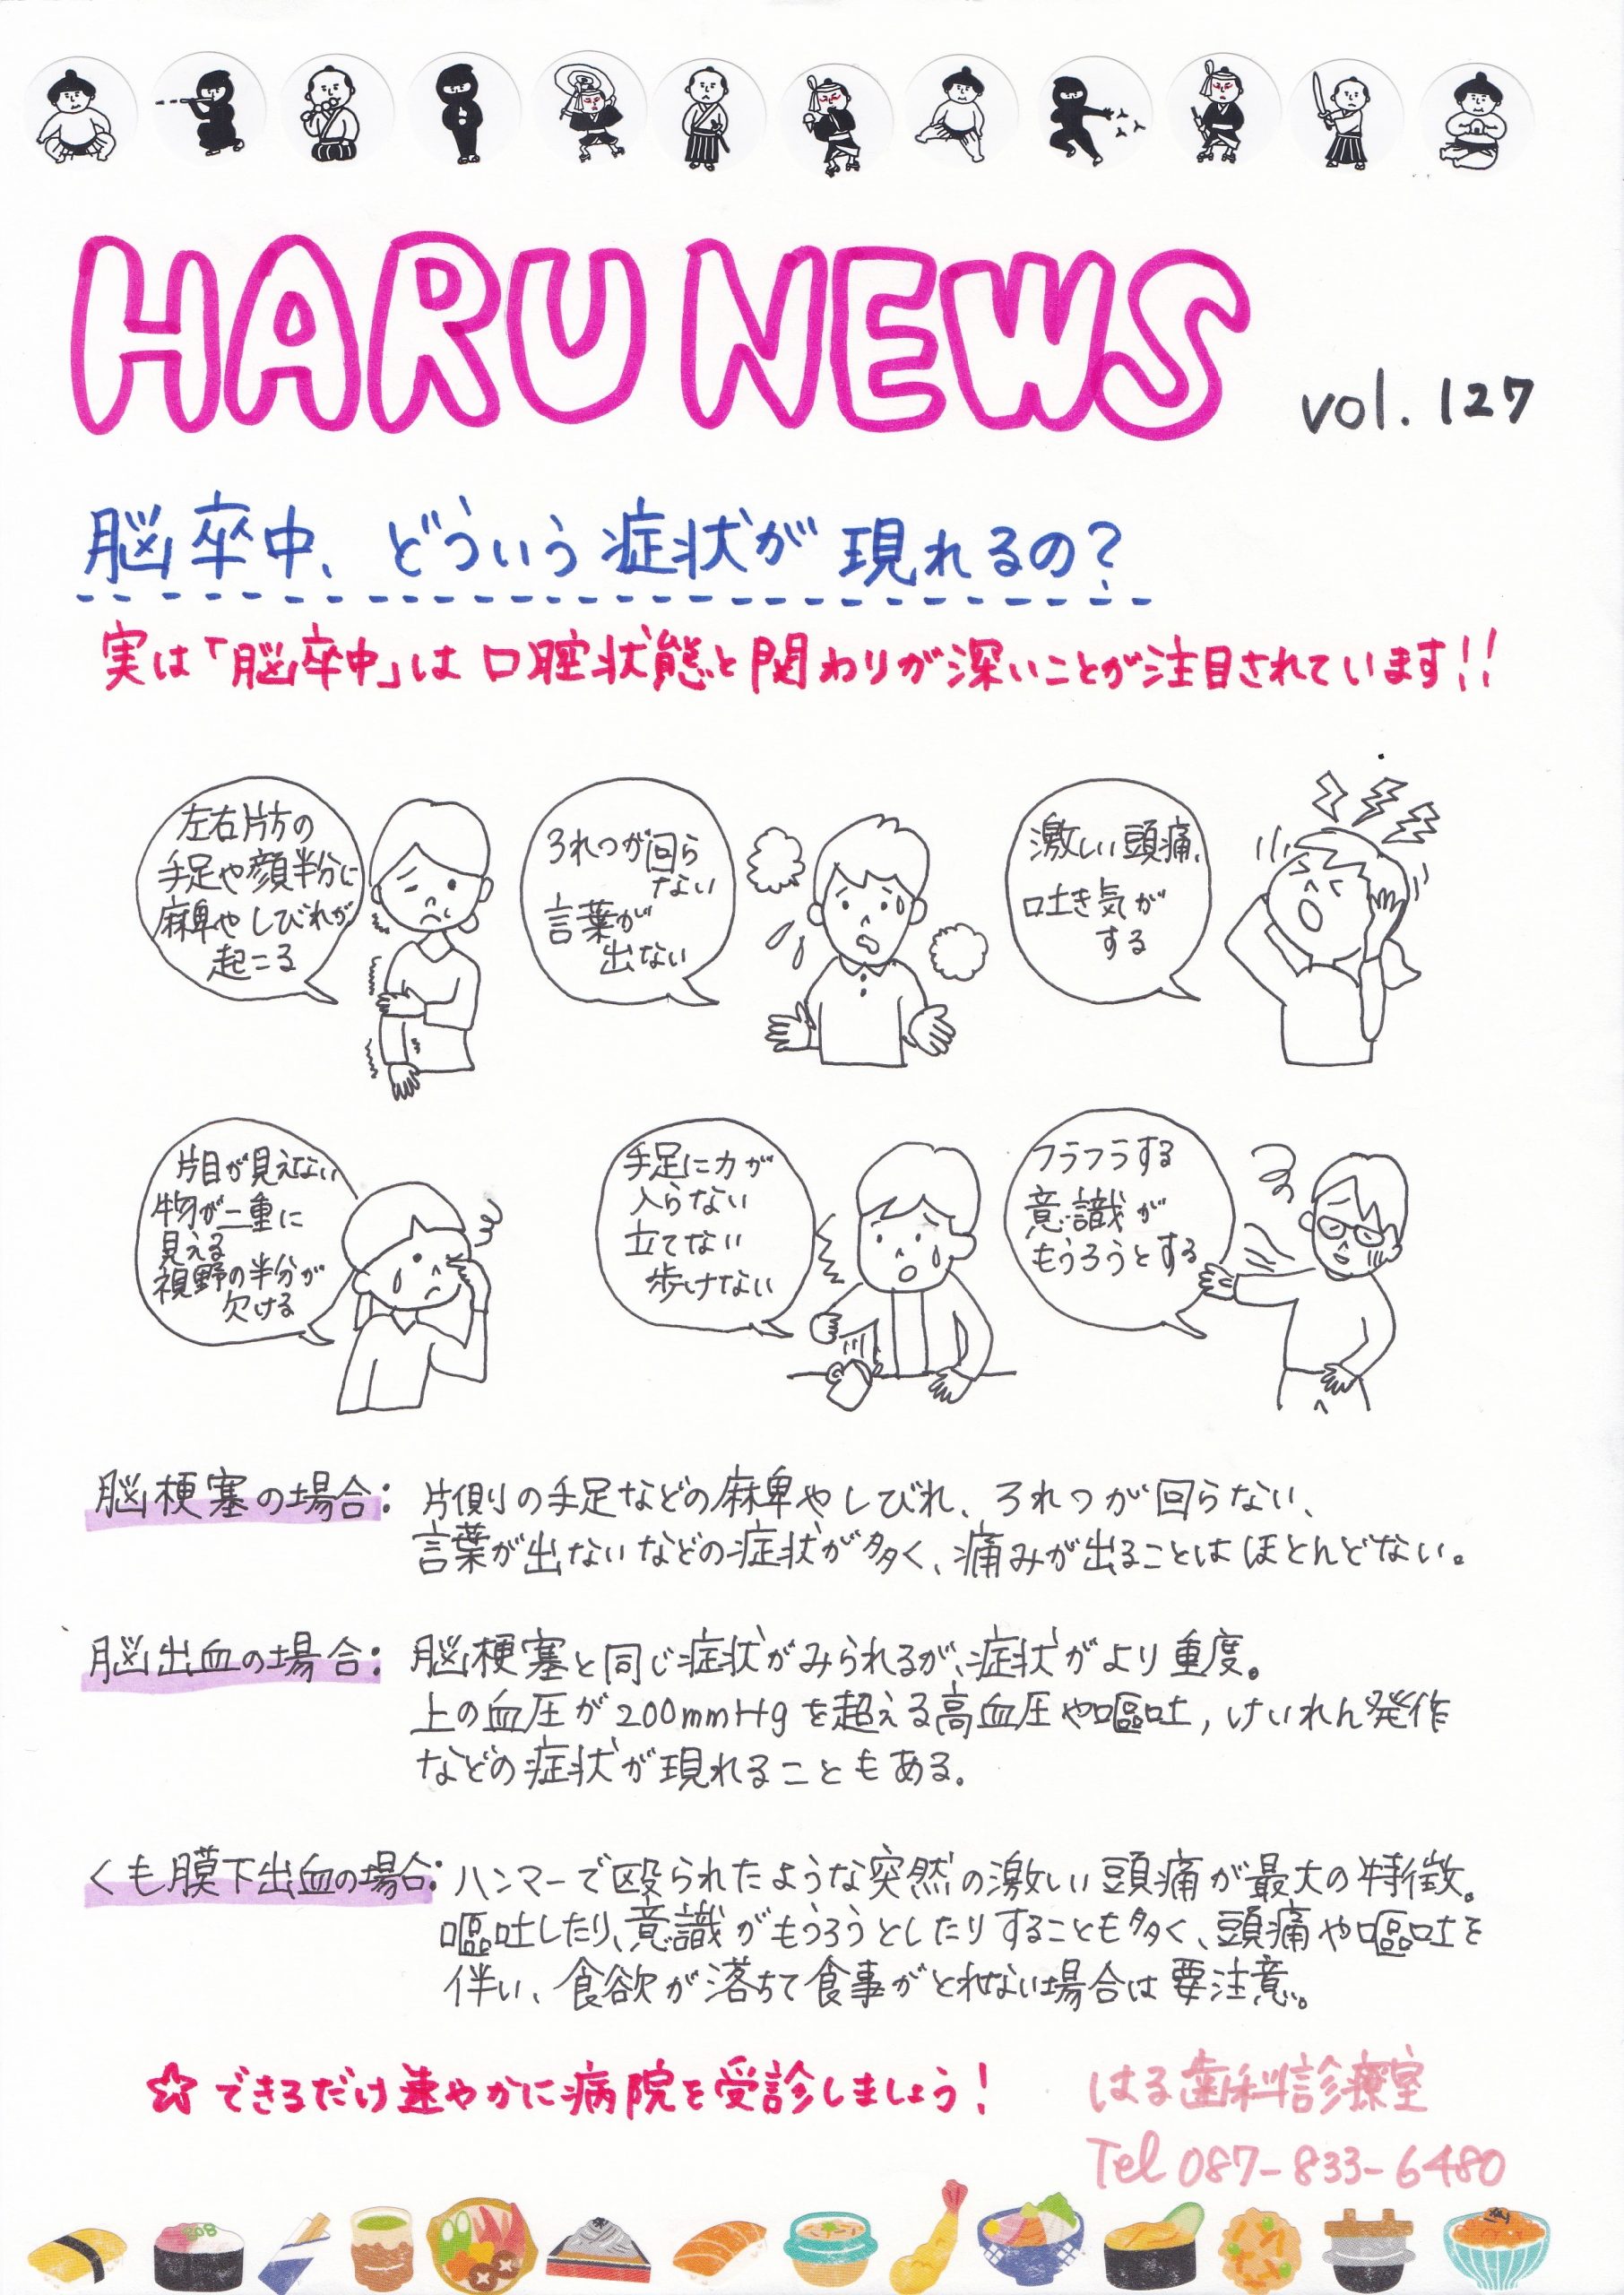 HARU NEWS vol. 127
脳卒中、どういう症状が現れるの?
実は「脳卒中」は口腔状態と関わりが深いことが注目されています!!
左右片方の
手足や顔半分に
麻痺やしびれが
起こる
ろれつが回ら
ない
言葉が
出ない
激しい頭痛、
吐き気が
する
片目が見えない
物が二重に
見える
視野の半分が
欠ける
手足に力が
入らない
立てない
歩けない
フラフラする
意識が
もうろうとする
脳梗塞の場合: 片側の手足などの麻痺やしびれ、ろれつが回らない、
言葉が出ないなどの症状が多く、痛みが出ることはほとんどない。
脳出血の場合: 脳梗塞と同じ症状がみられるが、症状がより重度。
上の血圧が200mmHgを超える高血圧や嘔吐,けいれん発作
などの症状が現れることもある。
くも膜下出血の場合: ハンマーで殴られたような突然の激しい頭痛が最大の特徴。
嘔吐したり、意識がもうろうとしたりすることも多く、頭痛や嘔吐を
伴い、食欲が落ちて食事がとれない場合は要注意。
☆できるだけ速やかに病院を受診しましょう!
はる歯科診療室
Tel 087-833-6480